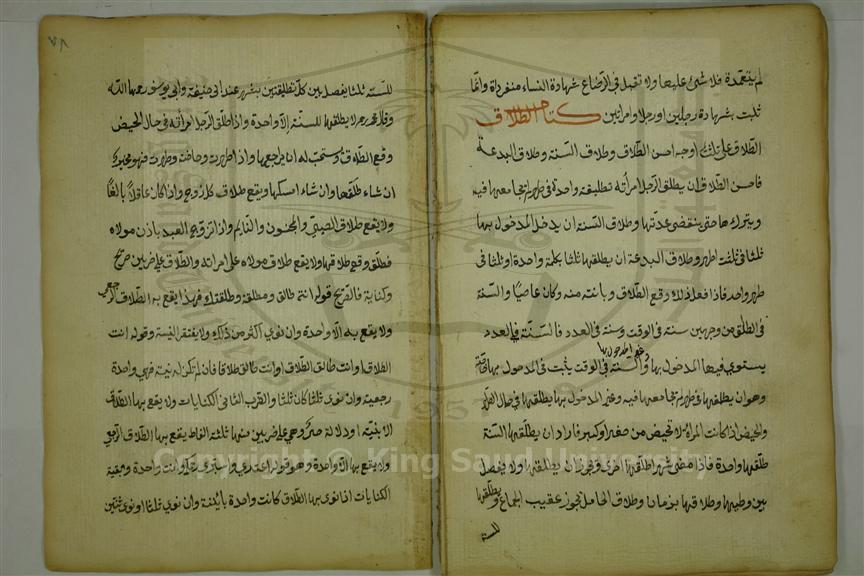 لم يتعمدة فلا شئ عليها ولا تقبل في الرضاع شهادة النساء منفردة وانما
ثلبت بشهادة رجلين او رجلا وامراتين كتاب الطلاق
الطلاق على ثلثة اوجه احسن الطلاق وطلاق السنة وطلاق البدعة
فاحسن الطلاق ان يطلق الرجل امرأته تطليقة واحدة في طهر لم يجامعها فيه
ويتركها حتى ينقضى عدتها وطلاق السنة ان يدخل المدخول بها
ثلثا في ثلثت اطهر وطلاق البدعة ان يطلقها ثلثا بكلمة واحدة او ثلثا في
طهر واحد فاذا فعل ذلك وقع الطلاق وبانته منه وكان عاصيا والسنة
في الطلق من وجهين سنة في الوقت وسنة في العدد فالسنة في العدد
يستوي فيها المدخول بها وغير المدخول بها والسنة في الوقت يثبت في المدخول بها خاصة
وهو ان يطلقها في طهر لم يجامعها فيه وغير المدخول بها يطلقها في حال الطهر
والحيض اذا كانت المرأة لا تحيض من صغر او كبر فاراد ان يطلقها السنة
طلقها واحدة فاذا مضى شهر اطلقها اخرى ويجوز ان يطلقها ولا يفصل
بين وطيها وطلاقها بزمان وطلاق الحامل يجوز عقيب الجماع ويطلقها
للسنة
٧٨
للسنة ثلثا يفصل بين كل تطليقتين بشهر عند ابي حنيفة وابي يوسف رحمها الله
وقال محمد رحمه لا يطلقها للسنة الا واحدة واذا طلق الرجل امرأته في حال الحيض
وقع الطلاق ويستحب له ان يراجعها واذا طهرت وحاضت وطهرت فهو مخير
ان شاء طلقها وان شاء امسكها ويقع طلاق كل زوج واذا كان عاقلا بالغا
ولا يقع طلاق الصبي والمجنون والنايم واذا تزوج العبد باذن مولاه
فطلق وقع طلاقها ولا يقع طلاق مولاه على امرأته والطلاق على ضربين صريح
وكناية فالصريح قوله انت طالق ومطلقة وطلقتك فهذا يقع به الطلاق الرجعى
ولا يقع به الا واحدة وان نوى اكثر من ذلك ولا يفتقر النية وقوله انت
الطلاق وانت طالق الطلاق وانت طالق طلاقا فان لم تكن له نية فهي واحدة
رجعية وان نوى ثلثا كان ثلثا والضرب الثاني الكنايات ولا يقع بها الطلاق
الا بنية او دلالة وهي على ضربين منها ثلثة الفاظ يقع بها الطلاق الرجعي
ولا يقع بها الا واحدة وهو قوله اعتدي واستبرئ وانت واحدة وبقية
الكنايات اذا نوى بها الطلاق كانت واحدة بائنة وان نوى ثلثا او نوى ثنتين
Copyright © King Saud University
1957